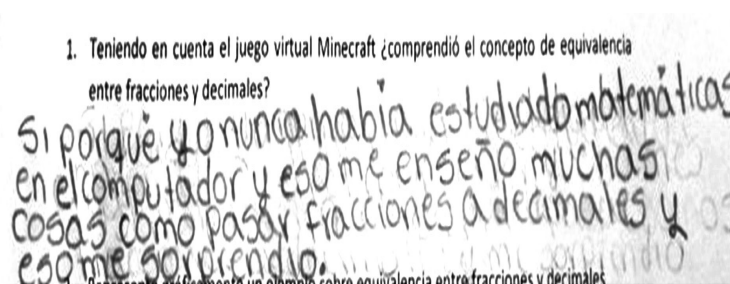 1. Teniendo en cuenta el juego virtual Minecraft ¿comprendió el concepto de equivalencia
entre fracciones y decimales?
Si porque yo nunca habia estudiado matemáticas
en el computador y eso me enseño muchas
cosas como pasar fracciones a decimales y
eso me sorprendio.
equivalencia entre fracciones y decimales